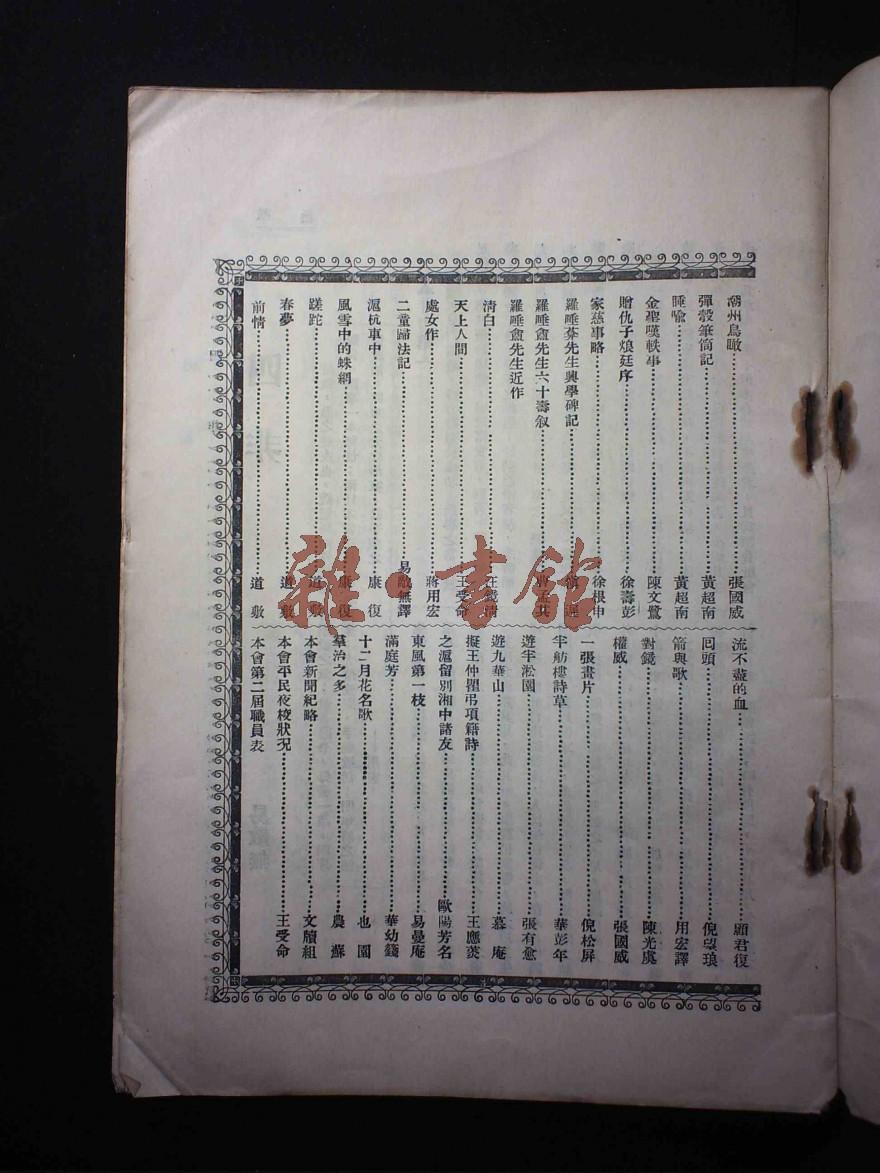 潮州鳥瞰……張國威
彈殼筆筒記……黃超南
睡喩……黃超南
金聖嘆軼事……陳文鷺
贈仇子烺廷序……徐壽彭
家慈事略……徐根申
羅唾葊先生興學碑記
羅唾盦先生六十壽叙
羅唾盦先生近作
淸白
天上人間……王受命
處女作……蔣用宏
二童歸法記……易敵無譯
滬杭車中……康復
風雪中的蛛網……康復
蹉跎……道敷
春夢……道敷
前情……道敷
流不盡的血……顧君復
囘頭……倪望琅
箭與歌……用宏譯
對鏡……陳光虞
權威……張國威
一張畫片……倪松屏
半舫樓詩草……華彭年
遊半淞園……張有愈
遊九華山……慕庵
擬王仲瞿弔項籍詩……王應
之滬留別湘中諸友……歐陽芳名
東風第一枝……易曼庵
滿庭芳……華幼籛
十二月花名歌……也園
羣治之多……農蘇
本會新聞紀略……文牘組
本會平民夜校狀况……王受命
本會第二屆職員表
雜·書館